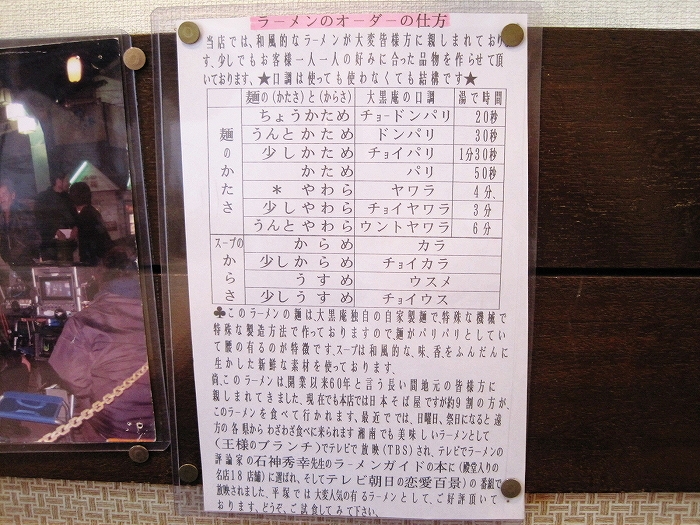 ラーメンのオーダーの仕方
当店では、和風的なラーメンが大変皆様方に親しまれておりま
す、少しでもお客様一人一人の好みに合った品物を作らせて頂
いております、★口調は使っても使わなくても結構です★
麺の(かたさ)と(からさ) 大黒庵の口調 湯で時間
麺のかたさ
ちょうかため チョードンパリ 20秒
うんとかため ドンパリ 30秒
少しかため チョイパリ 1分30秒
かため パリ 50秒
* やわら ヤワラ 4分、
少しやわら チョイヤワラ 3分
うんとやわら ウントヤワラ 6分
スープのからさ
からめ カラ
少しからめ チョイカラ
うすめ ウスメ
少しうすめ チョイウス
♣このラーメンの麺は大黒庵独自の自家製麺で、特殊な機械で
特殊な製造方法で作っておりますので、麺がパリパリとしてい
て腰の有るのが特徴です、スープは和風的な、味、香、をふんだんに
生かした新鮮な素材を使っております、
尚、このラーメンは開業以来60年と言う長い間地元の皆様方に
親しまれてきました、現在でも本店では日本そば屋ですが約9割の方が、
このラーメンを食べて行かれます、最近では、日曜日、祭日になると遠
方の各県からわざわざ食べに来られます湘南でも美味しいラーメンとして
(王様のブランチ)でテレビで放映(TBS)され、わでラーメンの
評論家の石神秀幸先生のラーメンガイドの本に(殿堂入りの
名店18店舗)に選ばれ、そしてテレビ朝日の恋愛百景)の番組で
放映されました、平塚では大変人気の有るラーメンとして、ご好評頂いて
おります、どうぞ、ご試食してみて下さい、